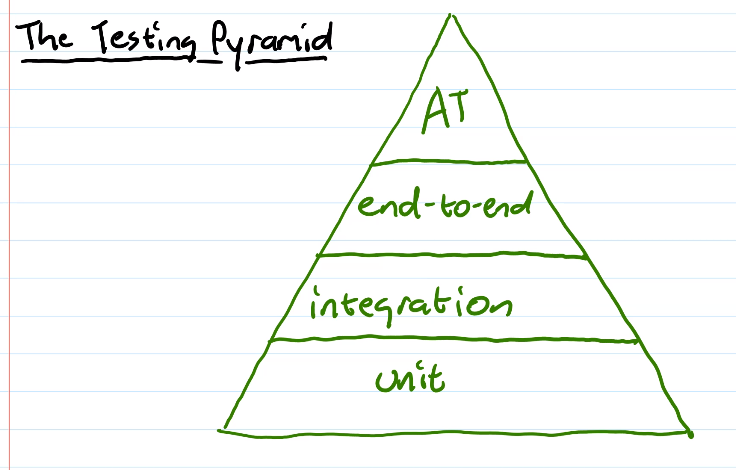 The Testing Pyramid
AT
end-to-end
integration
unit